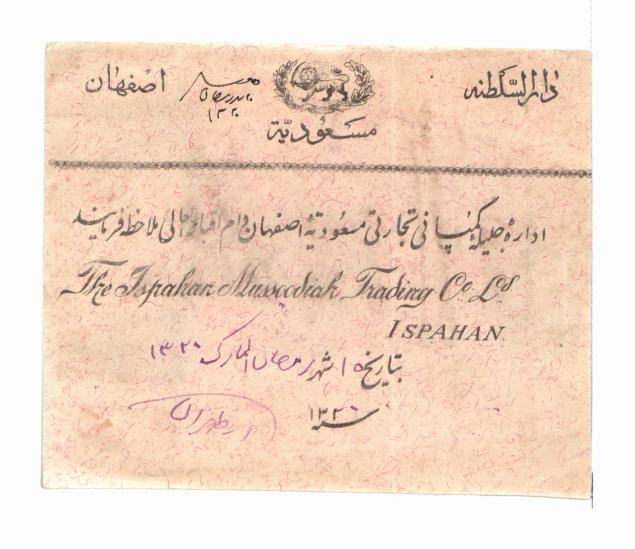 دارالسلطنه اصفهان
۱۳۲۰
مسعودیّه
ادارهٔ جلیلهٔ کمپانی تجارتی مسعودیّهٔ اصفهان دام اقباله العالی ملاحظه فرمایند
The Ispahan Mussoodiah Trading Co. Ld
ISPAHAN.
بتاریخ ۱۵ شهر رمضان المبارک ۱۳۲۰
سنه ۱۳۲۰
از طهران